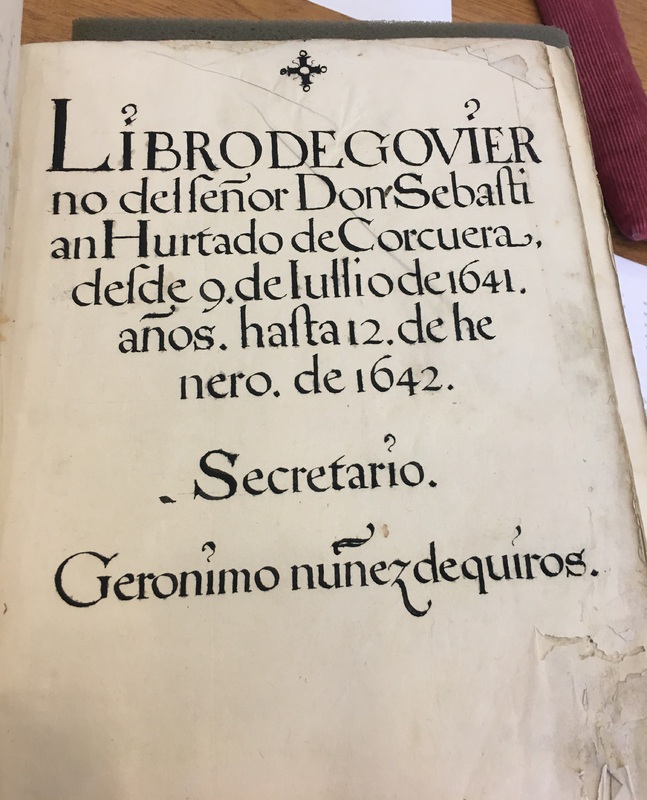 LIBRO DE GOVIER
no del ſeñor Don Sebaſti
an Hurtado de Corcuera,
deſde 9. de Iullio de 1641.
años. haſta 12. de he
nero. de 1642.
Secretario.
Geronimo nuñez de quiros.